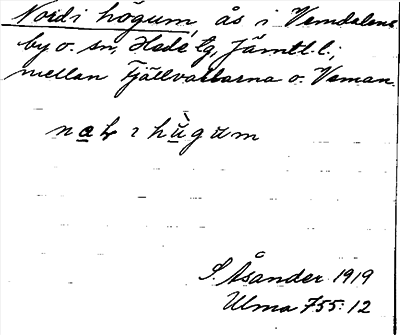 Nord i högum, ås i Vemdalens
by o. sn, Hede tg, Jämtl. l.;
mellan Fjällvallarna o. Veman.
S. Åsander 1919
Ulma 755:12